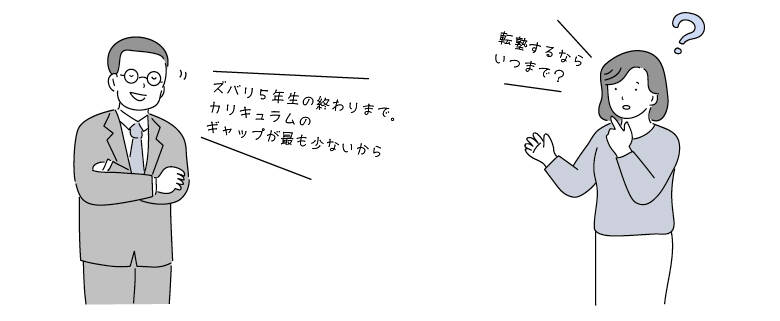 転塾するなら
いつまで？
ズバリ5年生の終わりまで。
カリキュラムの
ギャップが最も少ないから